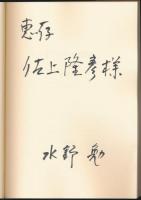 恵存
佐上隆彦様
水野勲